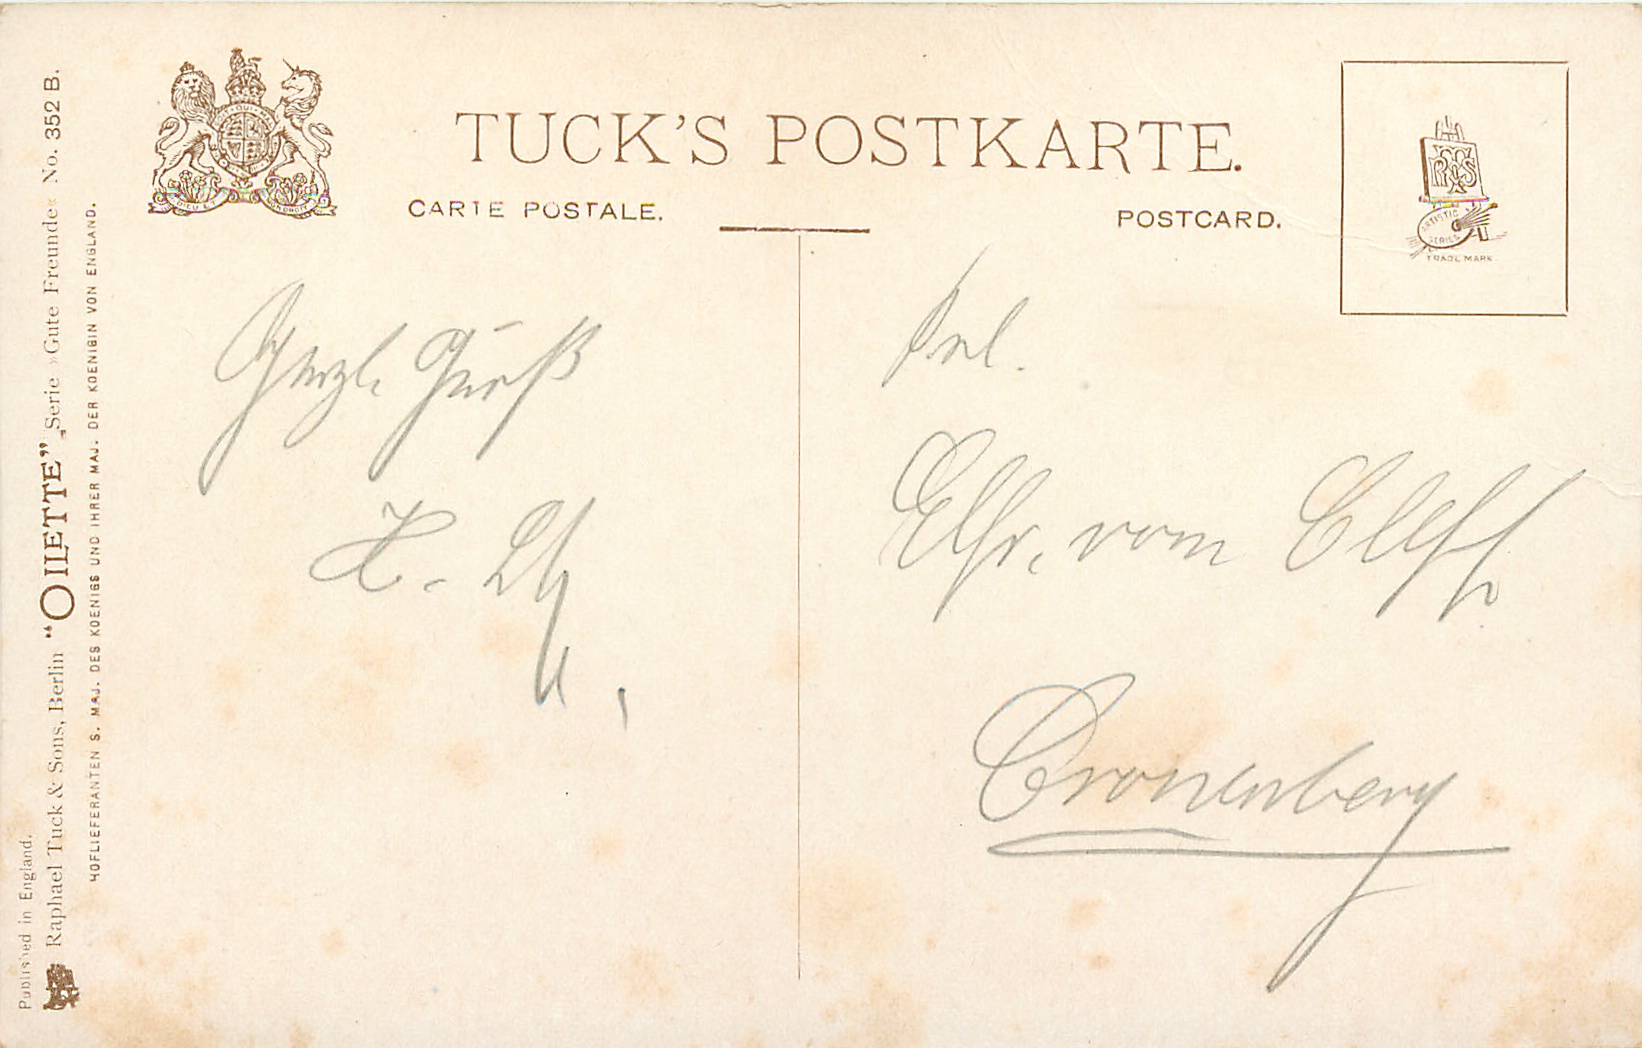 TUCK'S POSTKARTE.
CARTE POSTALE.
POSTCARD.
RTS
ARTISTIC
SERIES
TRADE MARK
DIEU ET MON DROIT
Herzl. Gruß
Frl.
Elfr. vom Cleff
Cronenberg
Published in England.
Raphael Tuck & Sons, Berlin "OILETTE" „Serie »Gute Freunde« No. 352 B.
HOFLIEFERANTEN S. MAJ. DES KOENIGS UND IHRER MAJ. DER KOENIGIN VON ENGLAND.